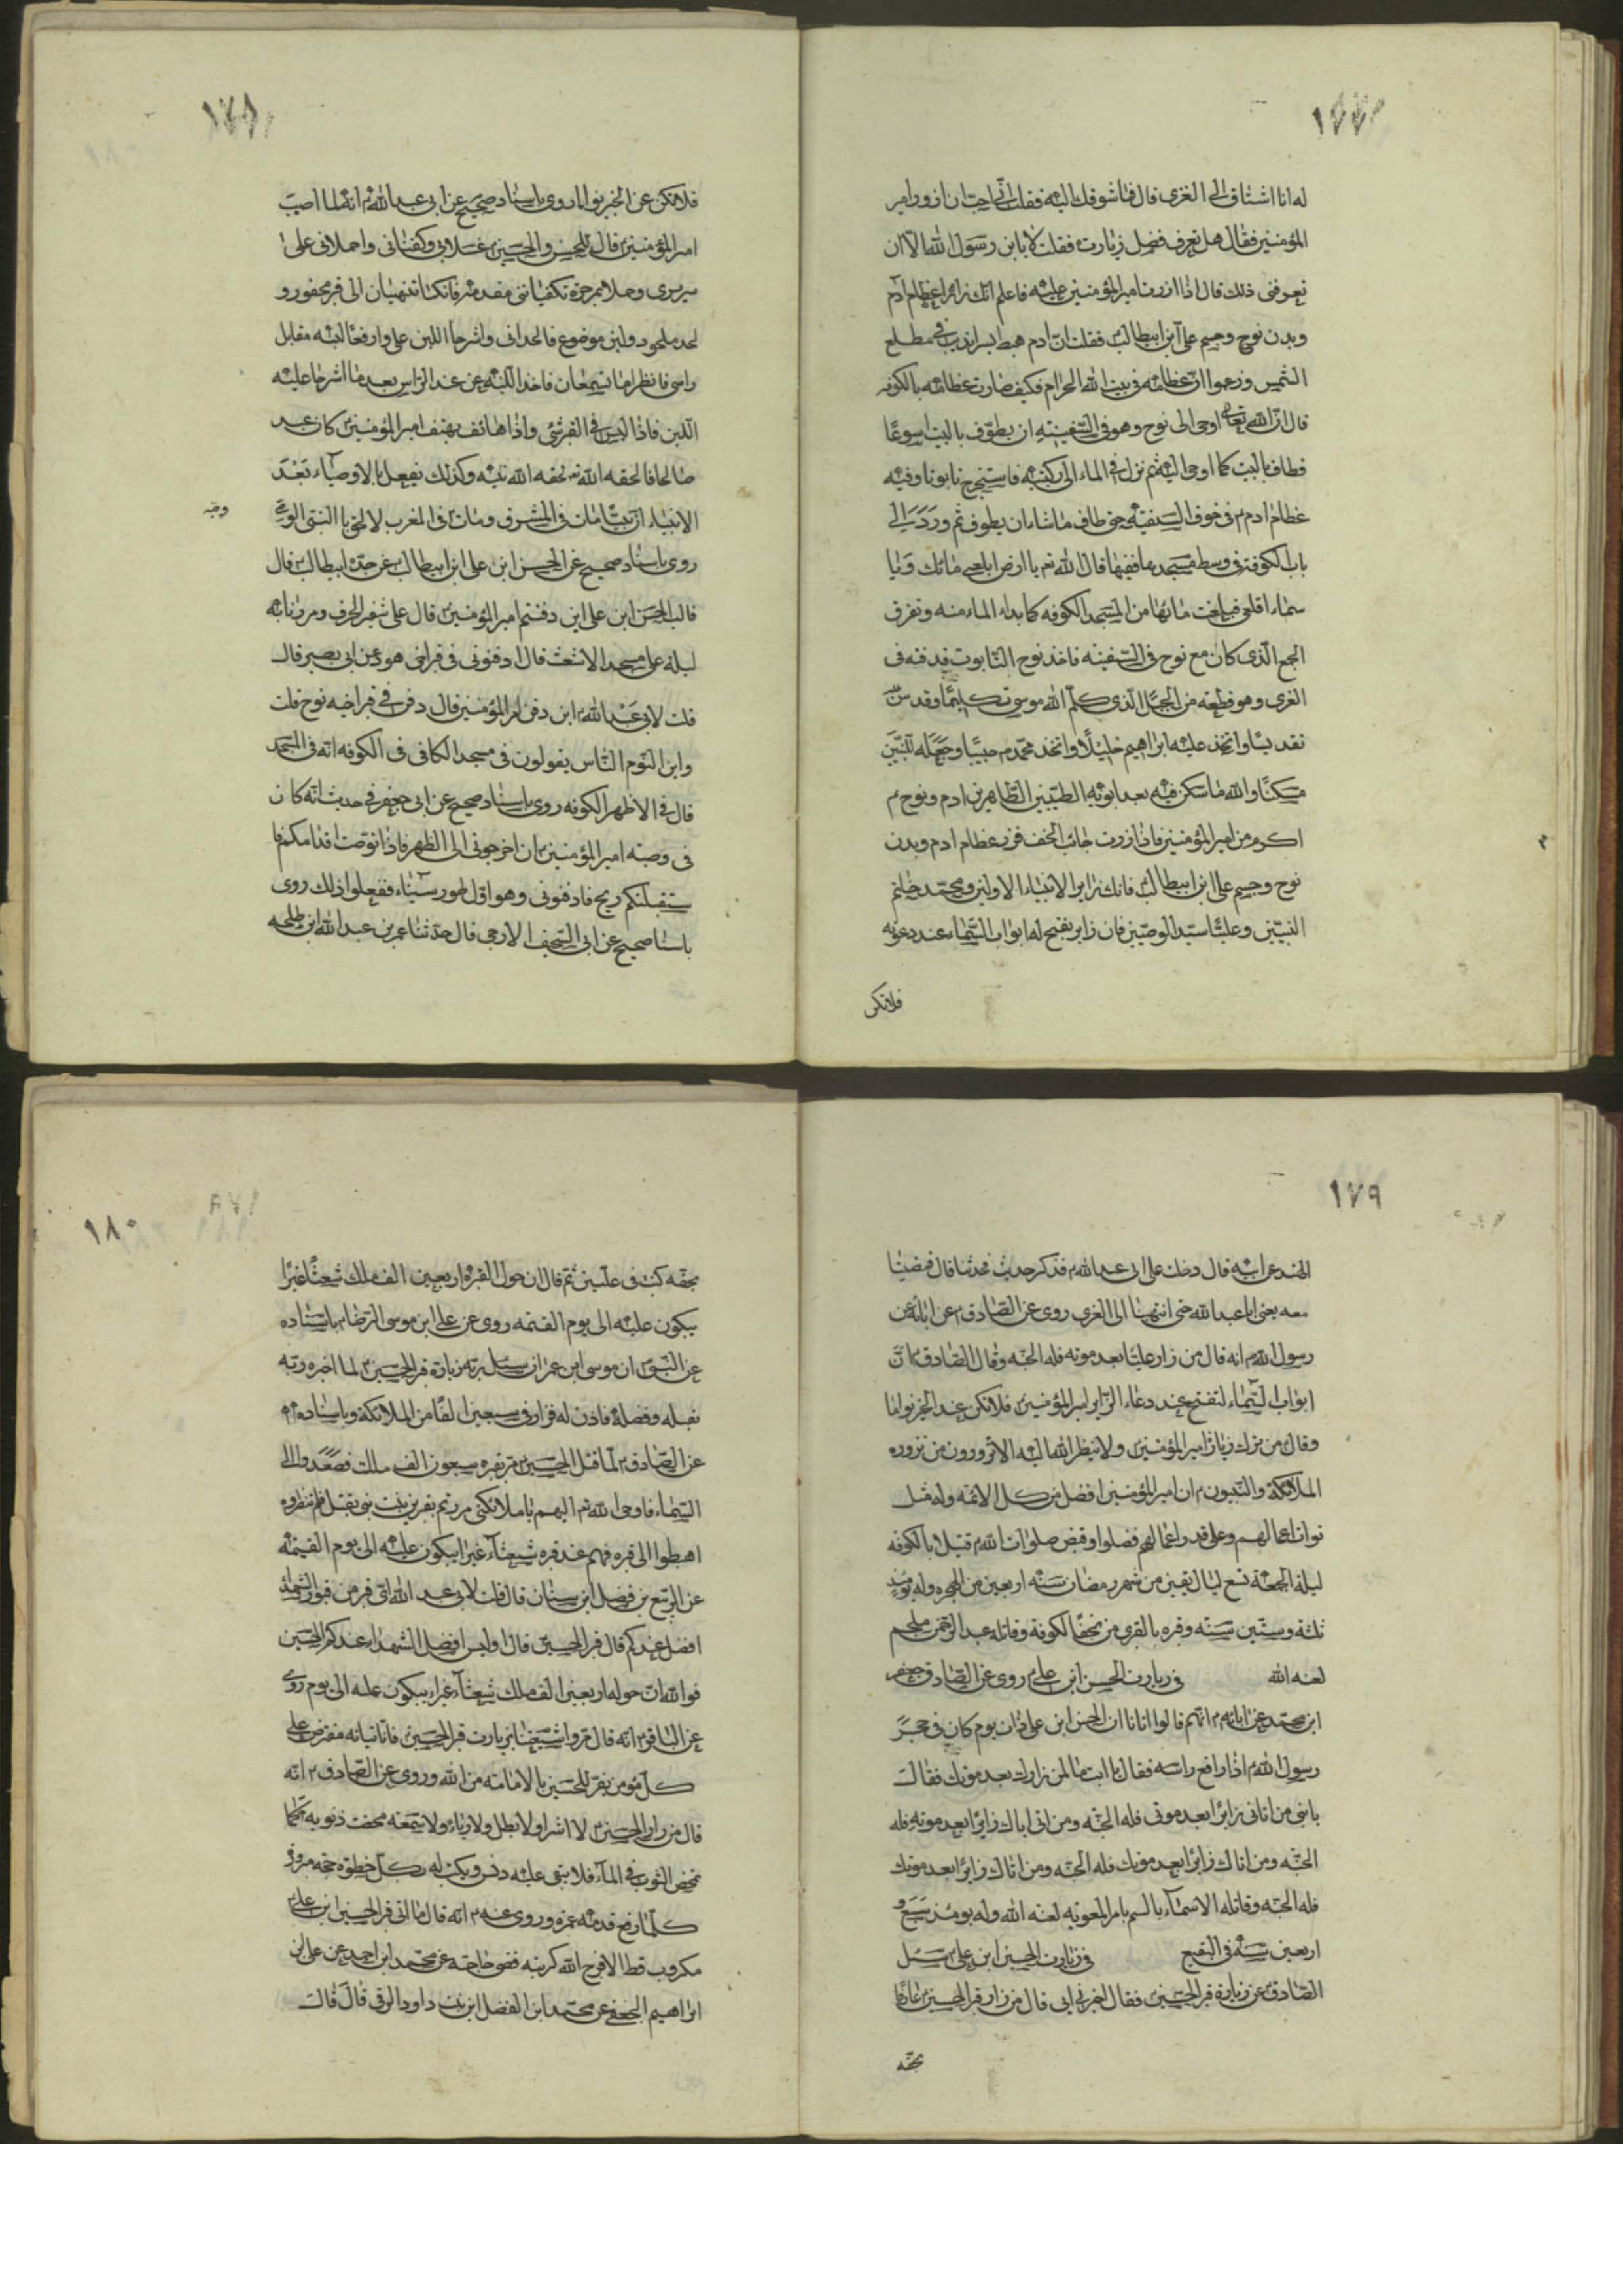 ١٧٧
له انا اشتاق الى الغرى قال فما شوقك اليه فقلت انى احب ان ازور امير
المؤمنين فقال هل تعرف فضل زيارته فقلت لا يابن رسول الله الا ان
تعرفنى ذلك قال اذا زرت امير المؤمنين عليه فاعلم انك زائر اعظام آدم
وبدن نوح وجسم على ابن ابيطالب فقلت ان ادم هبط بسرانديب فى مطلع
الشمس وزعموا ان عظامه فى بيت الله الحرام فكيف صارت عظامه بالكوفه
قال ان الله تعالى اوحى الى نوح وهو فى السفينة ان يطوف بالبيت اسبوعا
فطاف بالبيت كما اوحى اليه ثم نزل فى الماء الى ركبتيه فاستخرج تابوتا وفيه
عظام ادم م فى جوف السفينة حتى طاف ماشاء ان يطوف ثم ورد الى
باب الكوفة فى وسط مسجدها ففيها قال الله تع يا ارض ابلعى مائك ويا
سماء اقلعى فبلعت مائها من المسجد الكوفه كما بداء الماء منه وتفرق
الجمع الذى كان مع نوح فى السفينه فاخذ نوح التابوت فدفنه فى
الغرى وهو قطعه من الجبل الذى كلم الله موسى تكليما وقدس
تقديسا واتخذ عليه ابراهيم خليلا واتخذ محمدم حبيبا وجعله للنبيين
مسكنا والله ما سكن فيه بعد ابويه الطيبين الطاهرين ادم ونوح م
اكرم من امير المؤمنين فاذا زرت جانب النجف فزر عظام ادم وبدن
نوح وجسم على ابن ابيطالب فانك زاير الانبياء الاولين ومحمد خاتم
النبيين وعليا سيد الوصيين فان زايره يفتح له ابواب السماء عند دعوته
فلاتكن
١٧٨
فلاتكن عن الخير نواما روى باسناد صحيح عن ابى عبد الله م انه لما اصيب
امير المؤمنين قال للحسن والحسين غسلانى وكفنانى واحملانى على
سريرى وحملا موخره تكفيانى مقدمه فانكما تنتهيان الى قبر محفور و
لحد ملحود ولبن موضوع فالحدانى واشرجا اللبن على وارفعا لبنه مقابل
راسى فانظرا ما تسمعان فاخذ اللبنه من عند الراس بعد ما اشرجا عليه
اللبن فاذا ليس فى القبر شئ واذا هاتف يهتف امير المؤمنين كان عبد
صالحا فالحقه الله تع بحقه الله نبيه وكذلك يفعل بالاوصياء بعد
الانبياء ان نبيا مات فى المشرق ومات فى المغرب لالحق بالنبى الوصى
وصيه
روى باسناد صحيح عن الحسن ابن على ابن ابيطالب عن جده ابيطالب قال
قالت الحسن ابن على اين دفنتم امير المؤمنين قال على شفير الجرف ومررنا به
ليلة على مسجد الاشعث قال ادفنونى فى قبر اخى هود عن ابى بصير قال
قلت لابى عبد الله م اين دفن امير المؤمنين قال دفن فى قبر اخيه نوح قلت
واين النوم الناس يقولون فى مسجد الكافى فى الكوفه انه فى المسجد
قال فى الاظهر الكوفه روى باسناد صحيح عن ابى جعفر فى حديث انه كان
فى وصيه امير المؤمنين ان اخرجونى الى الظهر فاذا توصت اقدامكم فا
ستقبلتكم ريح فادفنونى وهو اول طور سيناء ففعلوا ذلك روى
باسنا صحيح عن ابى السخيف الارجى قال حدثنا عمر بن عبد الله ابن طلحه
١٧٩
الهندى عن ابيه قال دخلت على ابى عبد الله م فذكر حديث فحدثنا قال فمضينا
معه يعنى ابا عبد الله حتى انتهينا الى الغرى روى عن الصادق م عن ابائه عن
رسول الله م انه قال من زار عليا بعد موته فله الجنه وقال الصادق م ان
ابواب السماء لتفتح عند دعاء الزاير امير المؤمنين فلاتكن عند الخير نواما
وقال من ترك زيارة امير المؤمنين ولا ينظر الله اليه الا تزورون من تزوره
الملائكة والنبيون م ان امير المؤمنين افضل من كل الائمه وله مثل
ثواب اعمالهم وعلى قدر اعمالهم فضلوا وقبض صلوات الله م قتيلا بالكوفه
ليلة الجمعة تسع ليال بقين من شهر رمضان سنه اربعين من الهجره وله يومئذ
ثلثه وستين سنه وقبره بالغرى من نجف الكوفة وقاتله عبد الرحمن ملجم
لعنه الله فى زيارت الحسن ابن على روى عن الصادق جعفر
ابن محمد عن ابائه م انهم قالوا اتانا ان الحسن ابن على م ذات يوم كان فى حجر
رسول الله م اذا رافع راسه فقال يا ابت ما لمن زارك بعد موتك فقالت
يابنى من اتانى زايرا بعد موتى فله الجنه ومن اتى اباك زايرا بعد موته فله
الجنه ومن اتاك زايرا بعد موتك فله الجنه ومن اتاك زايرا بعد موتك
فله الجنه وقاتله الاسماء بالسم بامر المعويه لعنه الله وله يومئذ سبع و
اربعين سنه فى البقيع فى زيارت الحسين ابن على م سئل
الصادق م عن زيارة قبر الحسين فقال اخبرنى ابى قال من زار قبر الحسين عارفا
بحقه
١٨٠
بحقه كتب فى عليين ثم قال ان حول القبره اربعين الف ملك شعثا غبرا
يبكون عليه الى يوم القيمه روى عن على ابن موسى الرضا م باسناده
عن النبى م ان موسى ابن عمران سئل ربه زيارة قبر الحسين لما اخبره ربه
بقتله وفضله فاذن له فزار فى سبعين الفا من الملائكة وباسناده م
عن الصادق م لما قتل الحسين م مر بقبره سبعون الف ملك فصعدوا الى
السماء فاوحى الله تع اليهم يا ملائكتى مررتم بقبر ابن بنت نبى يقتل فلم تنظروه
اهبطوا الى قبره فهم عند قبره شعثاء غبرا يبكون عليه الى يوم القيمه
عن الربيع بن فضيل ابن سنان قال قلت لابى عبد الله اى قبر من قبور الشهداء
افضل عندكم قال قبر الحسين قال اوليس افضل الشهداء عندكم الحسين
فوالله ان حوله اربعين الف ملك شعثاء غبراء يبكون عليه الى يوم روى
عن الباقر م انه قال مروا شيعتنا بزيارت قبر الحسين فان اتيانه مفترض على
كل مؤمن يقر للحسين بالامامته من الله وروى عن الصادق م انه
قال من زار الحسين لا اشرا ولا بطل ولا رياء ولا سمعه محصت ذنوبه كما
تمحض الثوب فى الماء فلا يبقى عليه دنس ويكتب له بكل خطوه حجه مبرور
كلما رفع قدمه عمره وروى عنه م انه قال ما اتى قبر الحسين ابن على
مكروب قط الا فرج الله كربته فقضى حاجته عن محمد ابن احمد عن على ابن
ابراهيم الجعفى عن محمد ابن الفضل ابن بنت داود الرقى قال قالت